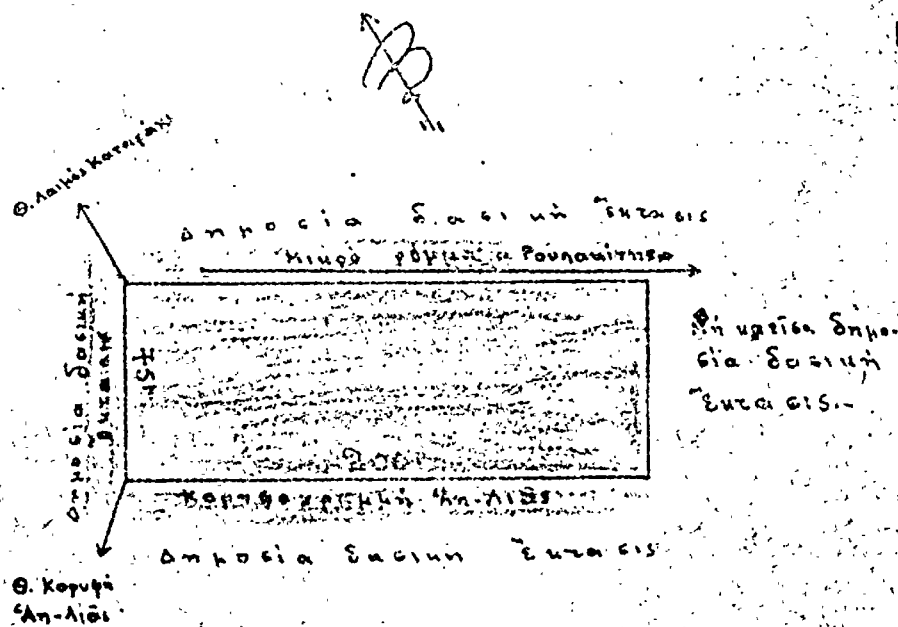 Β
Θ. Λαιμός Καταρράχι
Δημοσία δασική ἔκτασις
Μικρό ρέμμα Ρουπακίτικο
Δημοσία δασική
ἔκτασις
75μ
ἡ καεῖσα δημο-
σία δασική
ἔκτασις.-
Κορυφογραμμή Ἁη-Λιᾶς
Δημοσία δασική ἔκτασις
Θ. Κορυφή
Ἁη-Λιᾶς